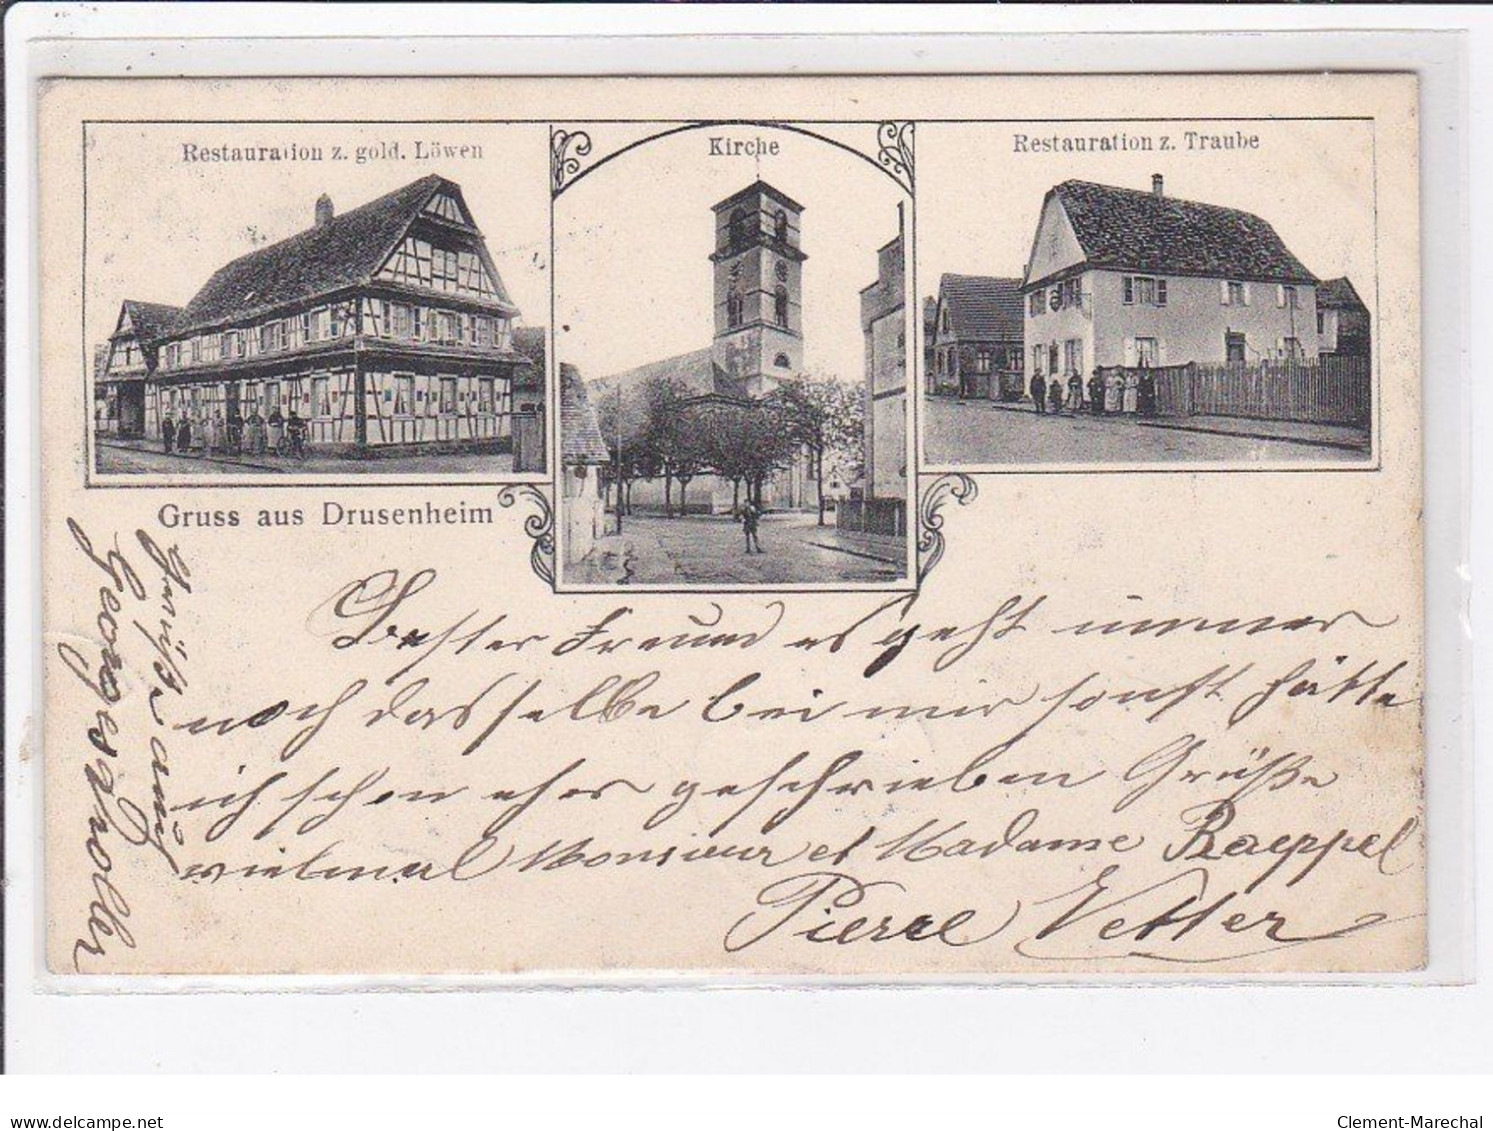 Restauration z. gold. Löwen
Kirche
Restauration z. Traube
Gruss aus Drusenheim
Bester Freund es geht immer
noch dasselbe bei mir sonst hätte
ich schon eher geschrieben Grüße
vielmal Monsieur et Madame Raeppel
Pierre Vetter
Grüße auch
Georges
delcampe.net
Clement-Marechal